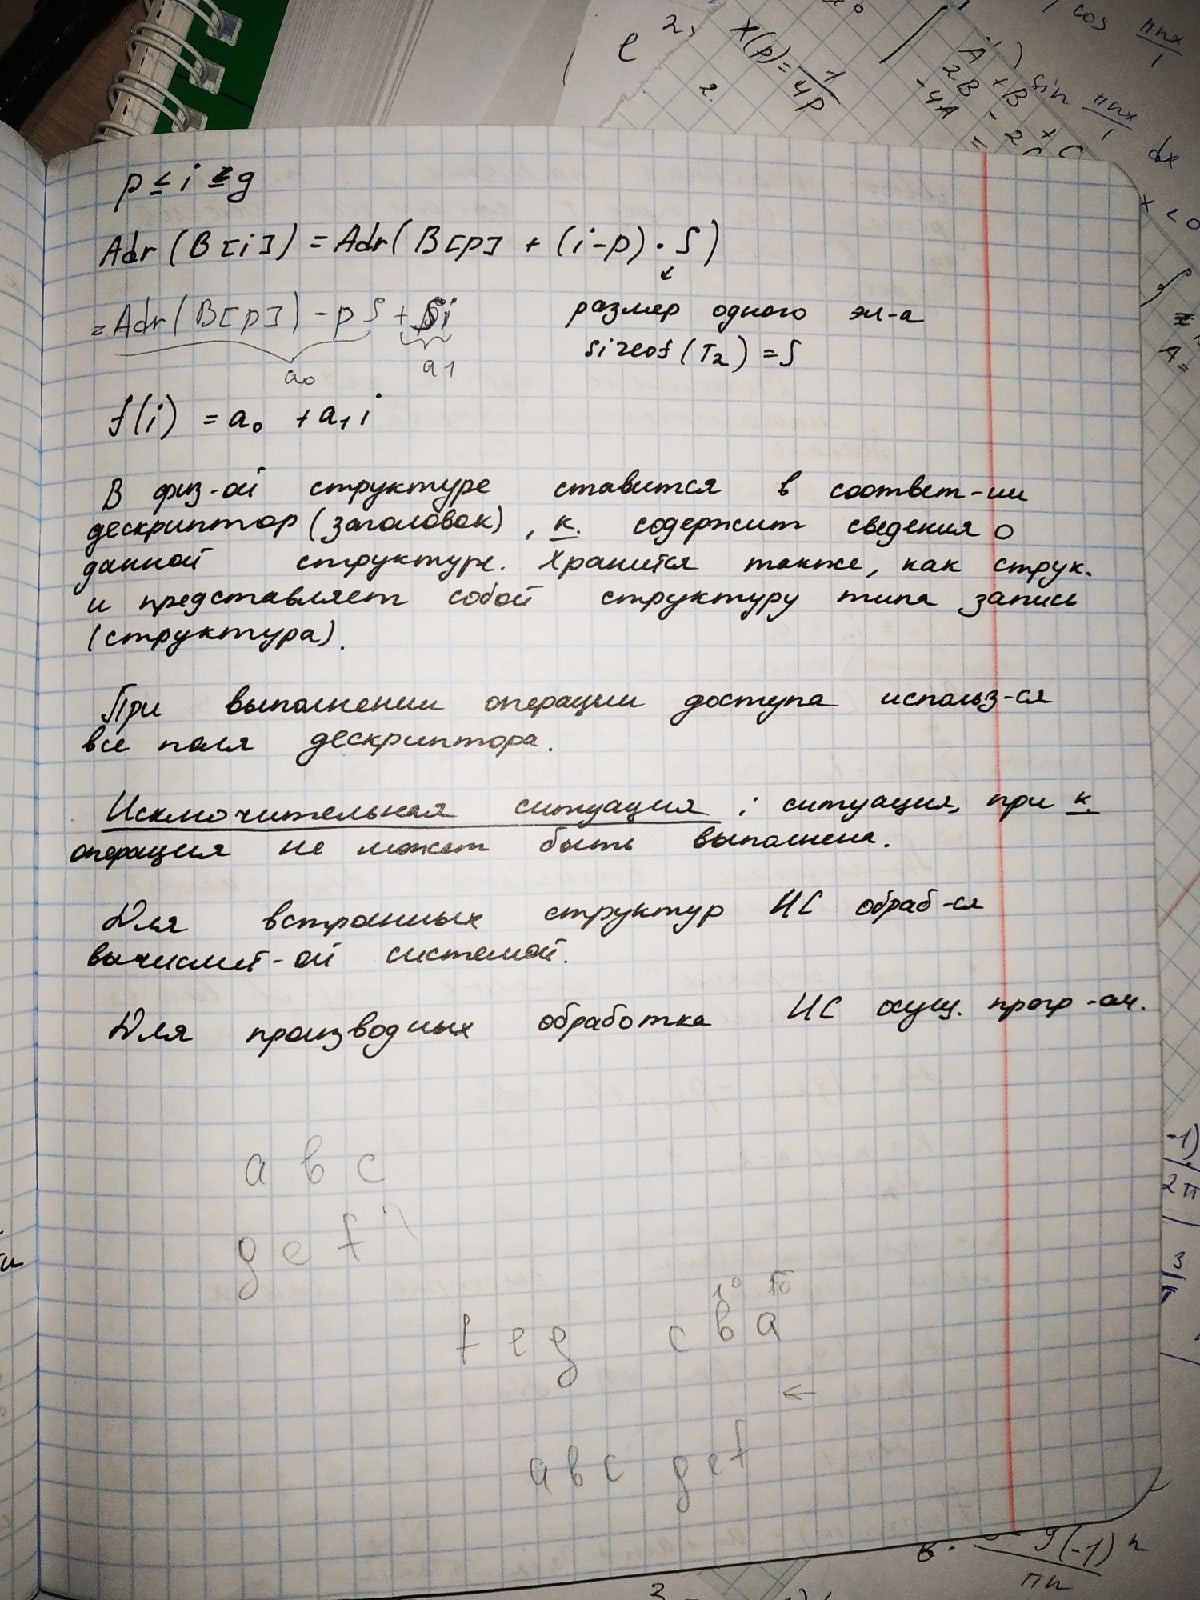 p ≤ i ≥ g
Adr(B[i]) = Adr(B[p] + (i-p)·S)
= Adr(B[p]) - pS + Si
a0 a1
размер одного эл-а
sizeof(T2) = S
f(i) = a0 + a1 i
В физ-ой структуре ставится в соответ-ии
дескриптор (заголовок), к. содержит сведения о
данной структуре. Хранится также, как струк.
и представляет собой структуру типа запись
(структура).
При выполнении операции доступа использ-ся
все поля дескриптора.
Исключительная ситуация: ситуация, при к.
операция не может быть выполнена.
Для встранных структур ИС обраб-ся
вычислит-ой системой.
Для производных обработка ИС осущ. прогр-ом.
a b c
g e f
f e g c b a
←
a b c g e f
e
X(p) = 1/4p
2.
cos πnx/1
sin πnx/1 dx
9(-1)^n
πn